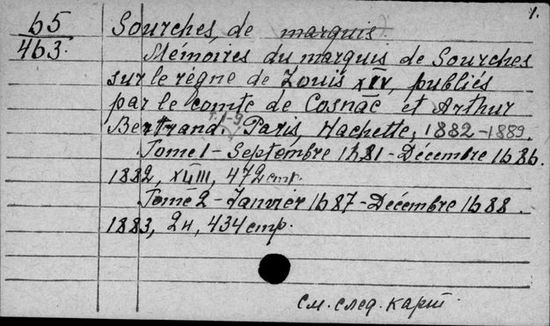 1.
65
463.
Sourches, de marquis
Mémoires du marquis de Sourches
sur le règne de Louis XIV, publiés
par le comte de Cosnac et Arthur
Bertrand. T. 1-9. Paris, Hachette, 1882-1889.
Tome 1 - Septembre 1681 - Décembre 1686.
1882, XLIII, 472 стр.
Tome 2 - Janvier 1687 - Décembre 1688.
1883, 2н, 434 стр.
См. след. карт.